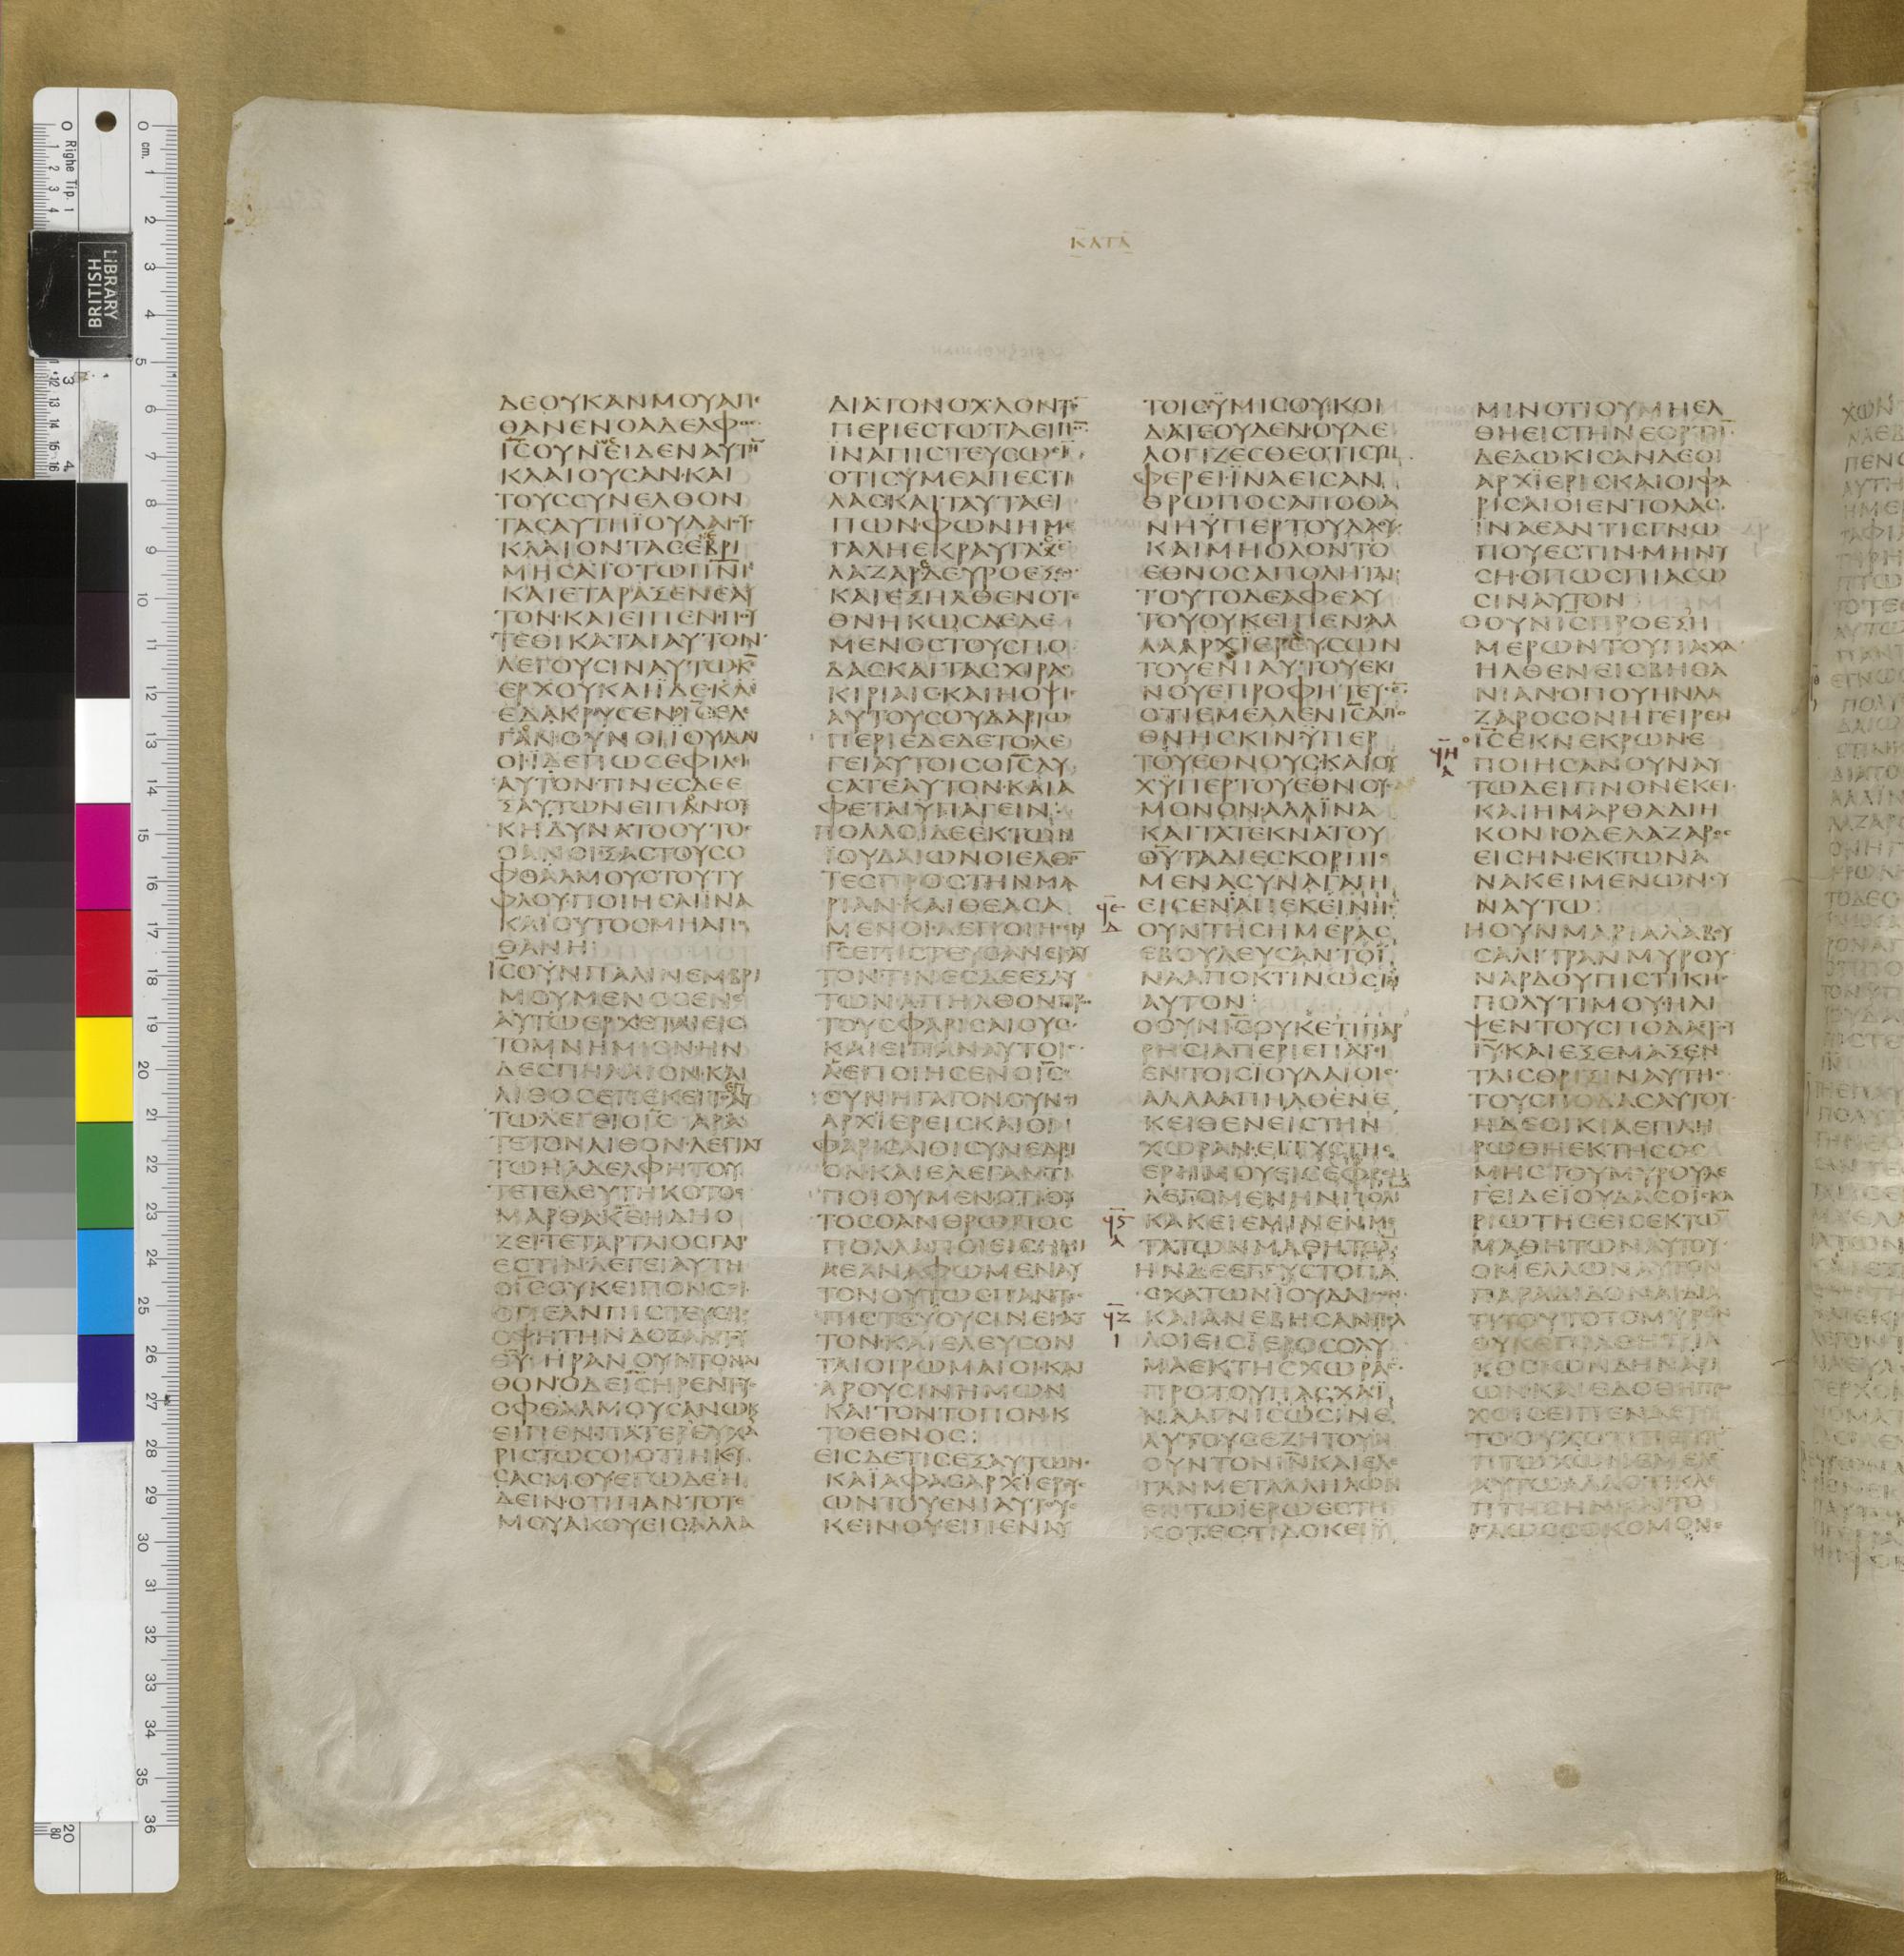 ΚΑΤΑ
ΔΕΟΥΚΑΝΜΟΥΑΠΕ
ΘΑΝΕΝΟΑΔΕΛΦΟϹ
ΙϹΟΥΝΕΙΔΕΝΑΥΤΗ
ΚΛΑΙΟΥϹΑΝΚΑΙ
ΤΟΥϹϹΥΝΕΛΘΟΝ
ΤΑϹΑΥΤΗΪΟΥΔΑΙΟΥ
ΚΛΑΙΟΝΤΑϹΕΒΡΙ
ΜΗϹΑΤΟΤΩΠΝΙ
ΚΑΙΕΤΑΡΑΞΕΝΕΑΥ
ΤΟΝΚΑΙΕΙΠΕΝΠΟΥ
ΤΕΘΙΚΑΤΑΙΑΥΤΟΝ
ΛΕΓΟΥϹΙΝΑΥΤΩΚΕ
ΕΡΧΟΥΚΑΙΪΔΕΚΑΙ
ΕΔΑΚΡΥϹΕΝΟΙϹΕΛΕ
ΓΑΝΟΥΝΟΙΪΟΥΔΑΙ
ΟΙΪΔΕΠΩϹΕΦΙΛΕΙ
ΑΥΤΟΝΤΙΝΕϹΔΕΕ
ΞΑΥΤΩΝΕΙΠΑΝΟΥ
ΚΗΔΥΝΑΤΟΟΥΤΟϹ
ΟΑΝΟΙΞΑϹΤΟΥϹΟ
ΦΘΑΛΜΟΥϹΤΟΥΤΥ
ΦΛΟΥΠΟΙΗϹΑΙΪΝΑ
ΚΑΙΟΥΤΟϹΜΗΑΠΟ
ΘΑΝΗ
ΙϹΟΥΝΠΑΛΙΝΕΜΒΡΙ
ΜΟΥΜΕΝΟϹΕΝΕ
ΑΥΤΩΕΡΧΕΤΑΙΕΙϹ
ΤΟΜΝΗΜΙΟΝΗΝ
ΔΕϹΠΗΛΑΙΟΝΚΑΙ
ΛΙΘΟϹΕΠΕΚΕΙΤΟ
ΤΩΛΕΓΕΙΟΙϹΑΡΑ
ΤΕΤΟΝΛΙΘΟΝΛΕΓΙΑΥ
ΤΩΗΑΔΕΛΦΗΤΟΥ
ΤΕΤΕΛΕΥΤΗΚΟΤΟϹ
ΜΑΡΘΑΚΕΗΔΗΟ
ΖΕΙΤΕΤΑΡΤΑΙΟϹΓΑΡ
ΕϹΤΙΝΛΕΓΕΙΑΥΤΗ
ΟΙϹΟΥΚΕΙΠΟΝϹΟΙ
ΟΤΙΕΑΝΠΙϹΤΕΥϹΗϹ
ΟΨΗΤΗΝΔΟΞΑΝΤΟΥ
ΘΥΗΡΑΝΟΥΝΤΟΝΛΙ
ΘΟΝΟΔΕΙϹΗΡΕΝΤΟΥϹ
ΟΦΘΑΛΜΟΥϹΑΝΩΚ
ΕΙΠΕΝΠΑΤΕΡΕΥΧΑ
ΡΙϹΤΩϹΟΙΟΤΙΗΚΟΥ
ϹΑϹΜΟΥΕΓΩΔΕΗ
ΔΕΙΝΟΤΙΠΑΝΤΟΤΕ
ΜΟΥΑΚΟΥΕΙϹΑΛΛΑ
ΔΙΑΤΟΝΟΧΛΟΝΤΟΝ
ΠΕΡΙΕϹΤΩΤΑΕΙΠΟΝ
ΙΝΑΠΙϹΤΕΥϹΩϹΙ
ΟΤΙϹΥΜΕΑΠΕϹΤΙ
ΛΑϹΚΑΙΤΑΥΤΑΕΙ
ΠΩΝΦΩΝΗΜΕ
ΓΑΛΗΕΚΡΑΥΓΑϹΕ
ΛΑΖΑΡΕΔΕΥΡΟΕΞΩ
ΚΑΙΕΞΗΛΘΕΝΟΤΕ
ΘΝΗΚΩϹΔΕΔΕ
ΜΕΝΟϹΤΟΥϹΠΟ
ΔΑϹΚΑΙΤΑϹΧΙΡΑϹ
ΚΙΡΙΑΙϹΚΑΙΗΟΨΙϹ
ΑΥΤΟΥϹΟΥΔΑΡΙΩ
ΠΕΡΙΕΔΕΔΕΤΟΛΕ
ΓΕΙΑΥΤΟΙϹΟΙϹΛΥ
ϹΑΤΕΑΥΤΟΝΚΑΙΑ
ΦΕΤΑΙΫΠΑΓΕΙΝ
ΠΟΛΛΟΙΔΕΕΚΤΩΝ
ΪΟΥΔΑΙΩΝΟΙΕΛΘΟΝ
ΤΕϹΠΡΟϹΤΗΝΜΑ
ΡΙΑΝΚΑΙΘΕΑϹΑ
ΜΕΝΟΙΑΕΠΟΙΗϹΕΝ
ΙϹΕΠΙϹΤΕΥϹΑΝΕΙϹΑΥ
ΤΟΝΤΙΝΕϹΔΕΕΞΑΥ
ΤΩΝΑΠΗΛΘΟΝΠΡΟϹ
ΤΟΥϹΦΑΡΙϹΑΙΟΥϹ
ΚΑΙΕΙΠΑΝΑΥΤΟΙϹ
ΑΕΠΟΙΗϹΕΝΟΙϹ
ϹΥΝΗΓΑΓΟΝΟΥΝΟΙ
ΑΡΧΪΕΡΕΙϹΚΑΙΟΙ
ΦΑΡΙϹΑΙΟΙϹΥΝΕΔΡΙ
ΟΝΚΑΙΕΛΕΓΑΝΤΙ
ΠΟΙΟΥΜΕΝΟΤΙΟΥ
ΤΟϹΟΑΝΘΡΩΠΟϹ
ΠΟΛΛΑΠΟΙΕΙϹΗΜΙ
ΑΕΑΝΑΦΩΜΕΝΑΥ
ΤΟΝΟΥΤΩϹΠΑΝΤΕϹ
ΠΙϹΤΕΥΟΥϹΙΝΕΙϹΑΥ
ΤΟΝΚΑΙΕΛΕΥϹΟΝ
ΤΑΙΟΙΡΩΜΑΙΟΙΚΑΙ
ΑΡΟΥϹΙΝΗΜΩΝ
ΚΑΙΤΟΝΤΟΠΟΝΚ
ΤΟΕΘΝΟϹ
ΕΙϹΔΕΤΙϹΕΞΑΥΤΩΝ
ΚΑΪΑΦΑϹΑΡΧΪΕΡΕΥϹ
ΩΝΤΟΥΕΝΙΑΥΤΟΥΕ
ΚΕΙΝΟΥΕΙΠΕΝΑΥ
ΤΟΙϹΫΜΙϹΟΥΚΟΙ
ΔΑΤΕΟΥΔΕΝΟΥΔΕ
ΛΟΓΙΖΕϹΘΕΟΤΙϹΥΜ
ΦΕΡΕΙΪΝΑΕΙϹΑΝ
ΘΡΩΠΟϹΑΠΟΘΑ
ΝΗΫΠΕΡΤΟΥΛΑΟΥ
ΚΑΙΜΗΟΛΟΝΤΟ
ΕΘΝΟϹΑΠΟΛΗΤΑΙ
ΤΟΥΤΟΔΕΑΦΕΑΥ
ΤΟΥΟΥΚΕΙΠΕΝΑΛ
ΛΑΑΡΧΪΕΡΕΥϹΩΝ
ΤΟΥΕΝΙΑΥΤΟΥΕΚΙ
ΝΟΥΕΠΡΟΦΗΤΕΥϹΕ
ΟΤΙΕΜΕΛΛΕΝΙϹΑΠΟ
ΘΝΗϹΚΙΝΫΠΕΡ
ΤΟΥΕΘΝΟΥϹΚΑΙΟΥ
ΧΫΠΕΡΤΟΥΕΘΝΟΥϹ
ΜΟΝΟΝΑΛΛΑΪΝΑ
ΚΑΙΤΑΤΕΚΝΑΤΟΥ
ΘΥΤΑΔΙΕϹΚΟΡΠΙϹ
ΜΕΝΑϹΥΝΑΓΑΓΗ
ϞΕ Δ
ΕΙϹΕΝΑΠΕΚΕΙΝΗϹ
ΟΥΝΤΗϹΗΜΕΡΑϹ
ΕΒΟΥΛΕΥϹΑΝΤΟΪ
ΝΑΑΠΟΚΤΙΝΩϹΙΝ
ΑΥΤΟΝ
ΟΟΥΝΙϹΟΥΚΕΤΙΠΑΡ
ΡΗϹΙΑΠΕΡΙΕΠΑΤΙ
ΕΝΤΟΙϹΪΟΥΔΑΙΟΙϹ
ΑΛΛΑΑΠΗΛΘΕΝΕ
ΚΕΙΘΕΝΕΙϹΤΗΝ
ΧΩΡΑΝΕΓΓΥϹΤΗϹ
ΕΡΗΜΟΥΕΙϹΕΦΡΑΙΜ
ΛΕΓΟΜΕΝΗΝΠΟΛΙ
ϞϚ Α
ΚΑΚΕΙΕΜΙΝΕΝΜΕ
ΤΑΤΩΝΜΑΘΗΤΩΝ
ΗΝΔΕΕΓΓΥϹΤΟΠΑ
ϹΧΑΤΩΝΪΟΥΔΑΙΩΝ
ϞΖ Ι
ΚΑΙΑΝΕΒΗϹΑΝΠΟΛ
ΛΟΙΕΙϹΪΕΡΟϹΟΛΥ
ΜΑΕΚΤΗϹΧΩΡΑϹ
ΠΡΟΤΟΥΠΑϹΧΑΪ
ΝΑΑΓΝΙϹΩϹΙΝΕ
ΑΥΤΟΥϹΕΖΗΤΟΥΝ
ΟΥΝΤΟΝΙΝΚΑΙΕΛΕ
ΓΑΝΜΕΤΑΛΛΗΛΩΝ
ΕΝΤΩΪΕΡΩΕϹΤΗ
ΚΟΤΕϹΤΙΔΟΚΕΙΫ
ΜΙΝΟΤΙΟΥΜΗΕΛ
ΘΗΕΙϹΤΗΝΕΟΡΤΗΝ
ΔΕΔΩΚΙϹΑΝΔΕΟΙ
ΑΡΧΪΕΡΙϹΚΑΙΟΙΦΑ
ΡΙϹΑΙΟΙΕΝΤΟΛΑϹ
ΪΝΑΕΑΝΤΙϹΓΝΩ
ΠΟΥΕϹΤΙΝΜΗΝΥ
ϹΗΟΠΩϹΠΙΑϹΩ
ϹΙΝΑΥΤΟΝ
ΟΟΥΝΙϹΠΡΟΕΞΗ
ΜΕΡΩΝΤΟΥΠΑϹΧΑ
ΗΛΘΕΝΕΙϹΒΗΘΑ
ΝΙΑΝΟΠΟΥΗΝΛΑ
ΖΑΡΟϹΟΝΗΓΕΙΡΕΝ
ΙϹΕΚΝΕΚΡΩΝΕ
ϞΗ Α
ΠΟΙΗϹΑΝΟΥΝΑΥ
ΤΩΔΕΙΠΝΟΝΕΚΕΙ
ΚΑΙΗΜΑΡΘΑΔΙΗ
ΚΟΝΙΟΔΕΛΑΖΑΡΟϹ
ΕΙϹΗΝΕΚΤΩΝΑ
ΝΑΚΕΙΜΕΝΩΝϹΥ
ΝΑΥΤΩ
ΗΟΥΝΜΑΡΙΑΛΑΒΟΥ
ϹΑΛΙΤΡΑΝΜΥΡΟΥ
ΝΑΡΔΟΥΠΙϹΤΙΚΗϹ
ΠΟΛΥΤΙΜΟΥΗΛΙ
ΨΕΝΤΟΥϹΠΟΔΑϹΤΟΥ
ΙΥΚΑΙΕΞΕΜΑΞΕΝ
ΤΑΙϹΘΡΙΞΙΝΑΥΤΗϹ
ΤΟΥϹΠΟΔΑϹΑΥΤΟΥ
ΗΔΕΟΙΚΙΑΕΠΛΗ
ΡΩΘΗΕΚΤΗϹΟϹ
ΜΗϹΤΟΥΜΥΡΟΥΛΕ
ΓΕΙΔΕΪΟΥΔΑϹΟΙϹΚΑ
ΡΙΩΤΗϹΕΙϹΕΚΤΩΝ
ΜΑΘΗΤΩΝΑΥΤΟΥ
ΟΜΕΛΛΩΝΑΥΤΟΝ
ΠΑΡΑΔΙΔΟΝΑΙΔΙΑ
ΤΙΤΟΥΤΟΤΟΜΥΡΟΝ
ΟΥΚΕΠΡΑΘΗΤΡΙΑ
ΚΟϹΙΩΝΔΗΝΑΡΙ
ΩΝΚΑΙΕΔΟΘΗΠΤΩ
ΧΟΙϹΕΙΠΕΝΔΕΤΟΥ
ΤΟΟΥΧΟΤΙΠΕΡΙΤΩΝ
ΠΤΩΧΩΝΕΜΕΛΕΝ
ΑΥΤΩΑΛΛΟΤΙΚΛΕ
ΠΤΗϹΗΝΚΑΙΤΟ
ΓΛΩϹϹΟΚΟΜΟΝΕ